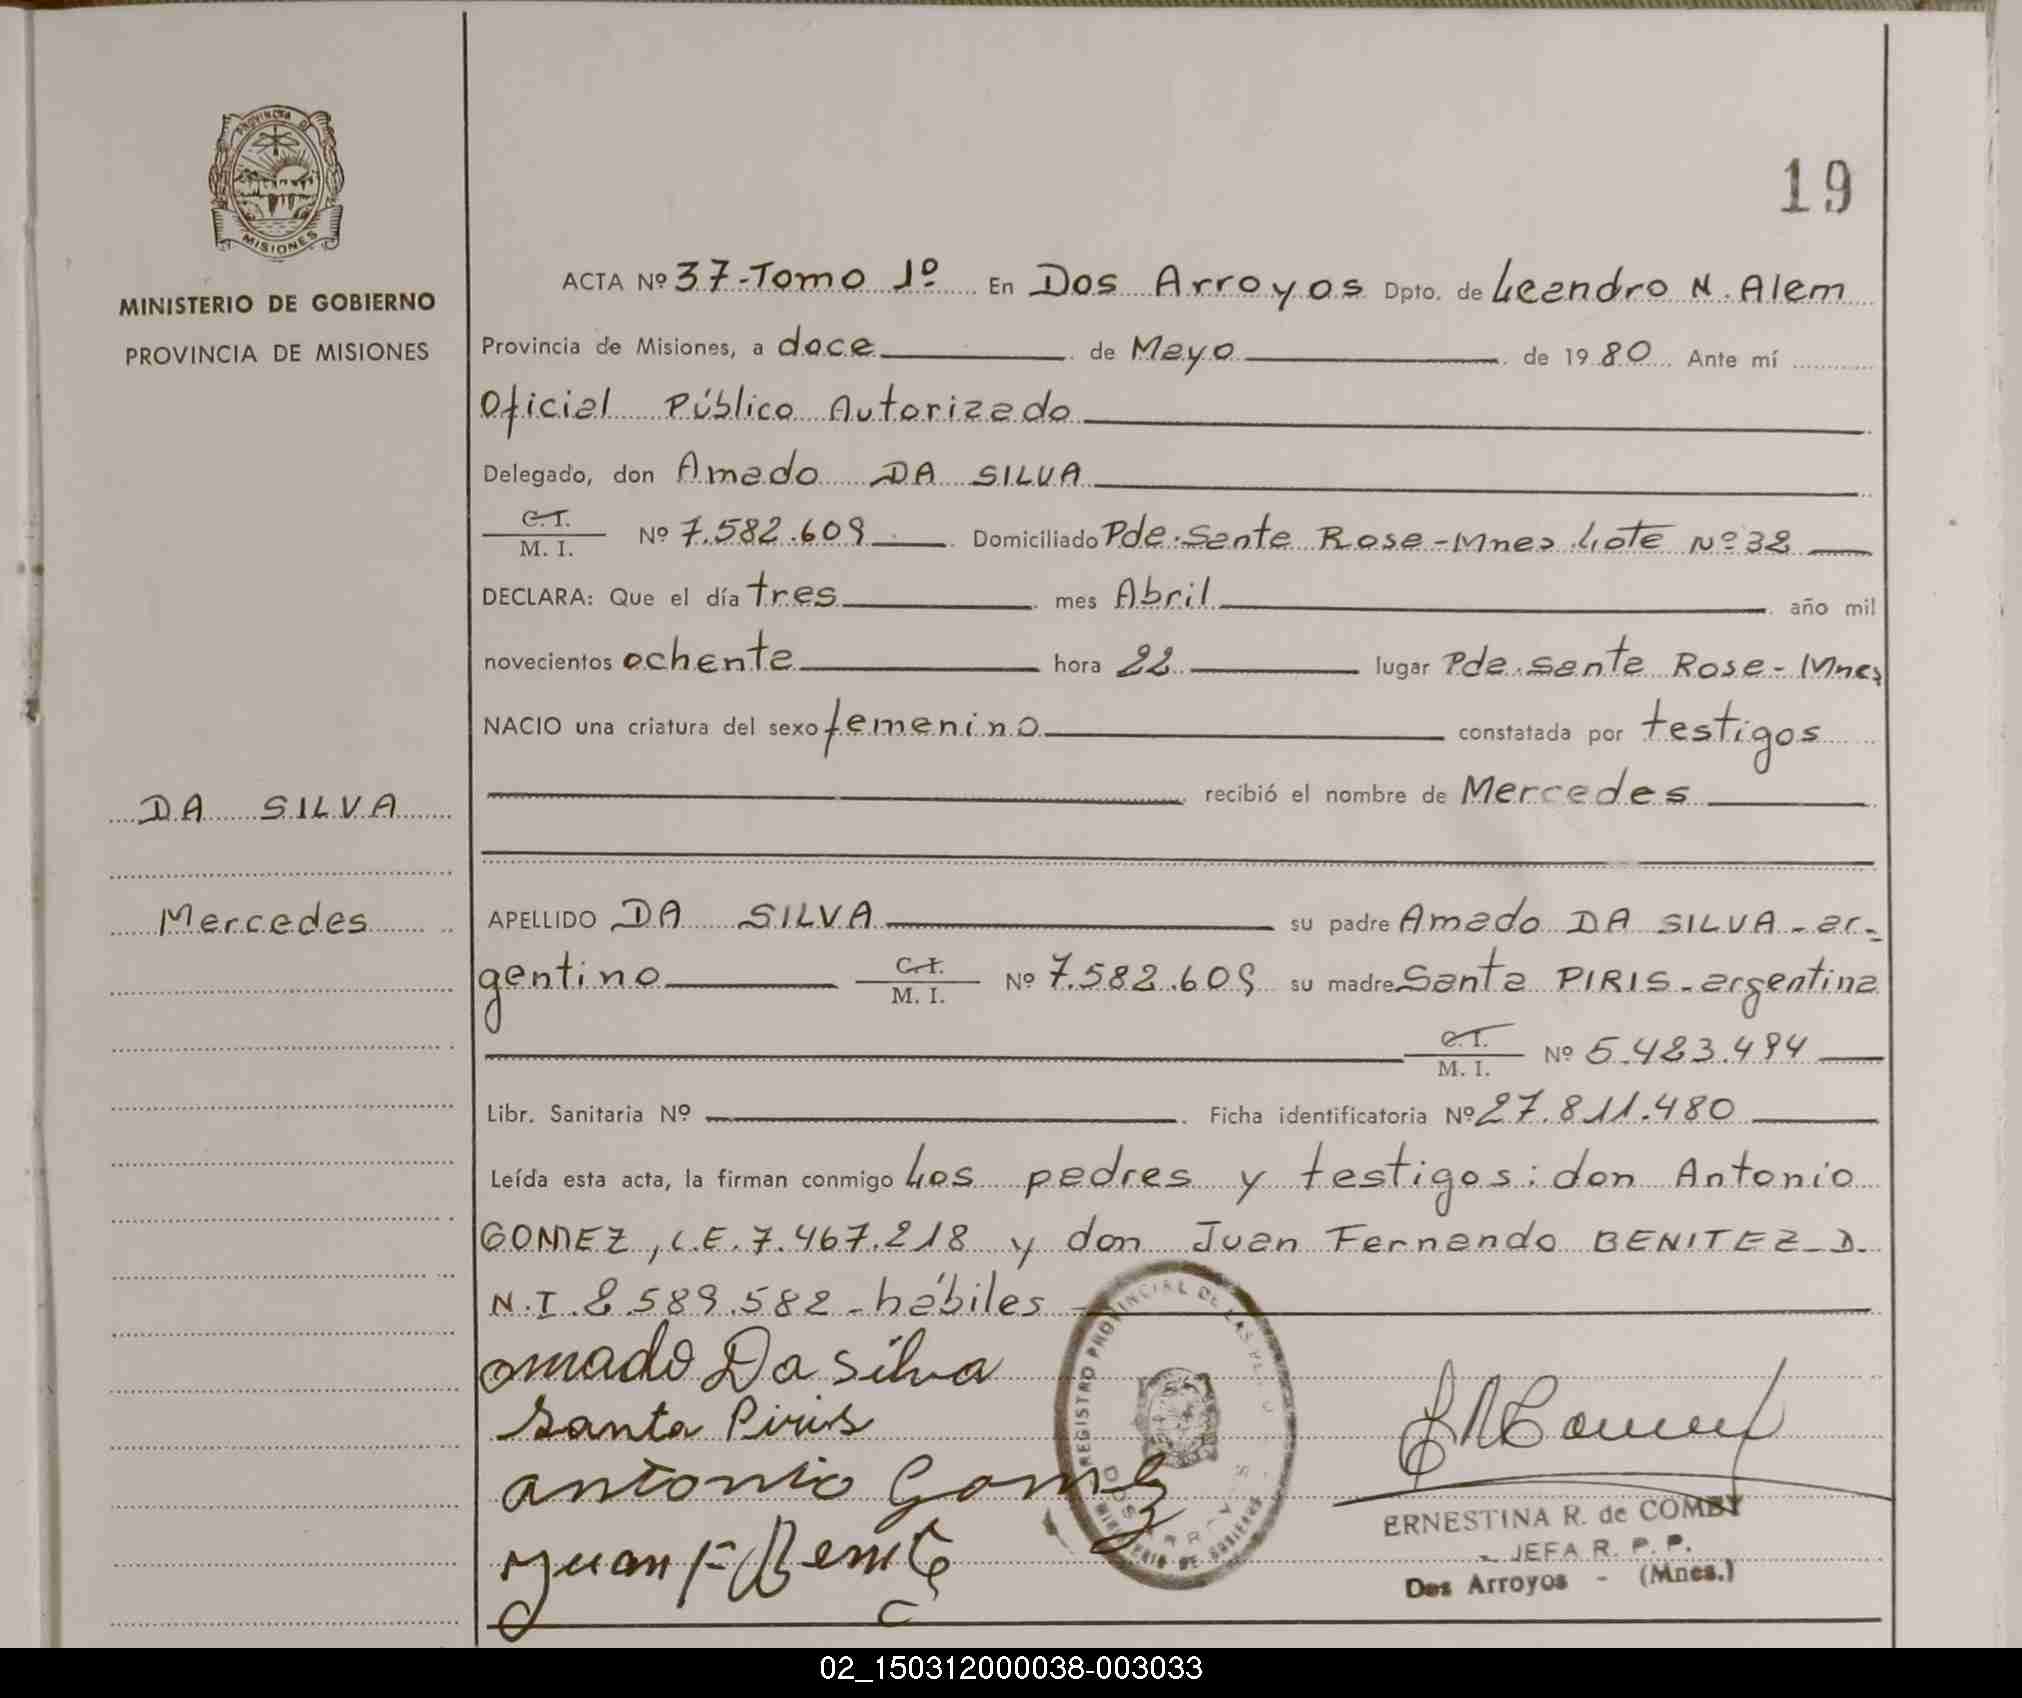 PROVINCIA DE
MISIONES
MINISTERIO DE GOBIERNO
PROVINCIA DE MISIONES
DA SILVA
Mercedes
19
ACTA Nº 37-Tomo 1º En Dos Arroyos Dpto. de Leandro N. Alem
Provincia de Misiones, a doce de Mayo de 1980 Ante mí
Oficial Público Autorizado
Delegado, don Amado DA SILVA
C.I.
M. I. Nº 7.582.609 Domiciliado Pde. Santa Rosa-Mnes Lote Nº 38
DECLARA: Que el día tres mes Abril año mil
novecientos ochenta hora 22 lugar Pde. Santa Rosa - Mnes
NACIO una criatura del sexo femenino constatada por testigos
recibió el nombre de Mercedes
APELLIDO DA SILVA su padre Amado DA SILVA - ar-
gentino C.I.
M. I. Nº 7.582.609 su madre Santa PIRIS - argentina
C.I.
M. I. Nº 5.483.494
Libr. Sanitaria Nº Ficha identificatoria Nº 27.811.480
Leída esta acta, la firman conmigo Los padres y testigos: don Antonio
GOMEZ, L.E. 7.467.218 y don Juan Fernando BENITEZ - D.
N.I. 8.589.582 - hábiles
Amado Da Silva
Santa Piris
antonio Gomez
Juan F Benitez
REGISTRO PROVINCIAL DE LAS
DOS ARROYOS
MINISTERIO DE GOBIERNO
ERNESTINA R. de COMBY
JEFA R. P. P.
Dos Arroyos - (Mnes.)
02_150312000038-003033